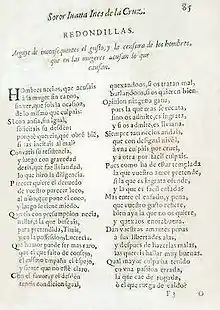 Soror Iuana Ines de la Cruz. 85
REDONDILLAS.
Arguye de inconsequentes el gusto, y la censura de los hombres,
que en las mugeres acusan lo que
causan.
Hombres necios, que acusais
à la muger sin razon,
sin ver, que sois la ocasion,
de lo mismo que culpais:
Si con ansia sin igual,
solicitais su desden:
porquè quereis, que obren bien,
si las incitais al mal?
Combatis su resistencia,
y luego con gravedad
dezis, que fue liviandad,
lo que hizo la diligencia.
Parecer quiere el denuedo
de vuestro parecer loco,
al niño, que pone el coco,
y luego le tiene miedo.
Quereis con presumpcion necia,
hallar à la que buscais,
para pretendida, Thais,
y en la possession, Lucrecia.
Que humor puede ser mas raro,
que el que, falto de consejo,
èl mismo empaña el espejo,
y siente que no estè claro.
Con el favor, y el desden
teneis condicion igual,
quexandoos, si os tratan mal,
burlandoos, si os quieren bien.
Opinion ninguna gana,
pues la que mas se recata,
sino os admite, es ingrata,
y si os admite, es liviana.
Siempre tan necios andais,
que con desigual nivel,
à una culpais por cruel,
y à otra por facil culpais.
Pues como ha de estar templada
la que vuestro amor pretende,
si la que es ingrata, ofende,
y la que es facil, enfada?
Mas entre el enfado, y pena,
que vuestro gusto refiere,
bien aya la que no os quiere,
y quexaos enorabuena.
Dan vuestras amantes penas
à sus libertades alas,
y despues de hazerlas malas,
las quereis hallar muy buenas.
Qual mayor culpa ha tenido
en una passion errada,
la que cae de rogada,
ò el que ruega de caido?
F 3 O